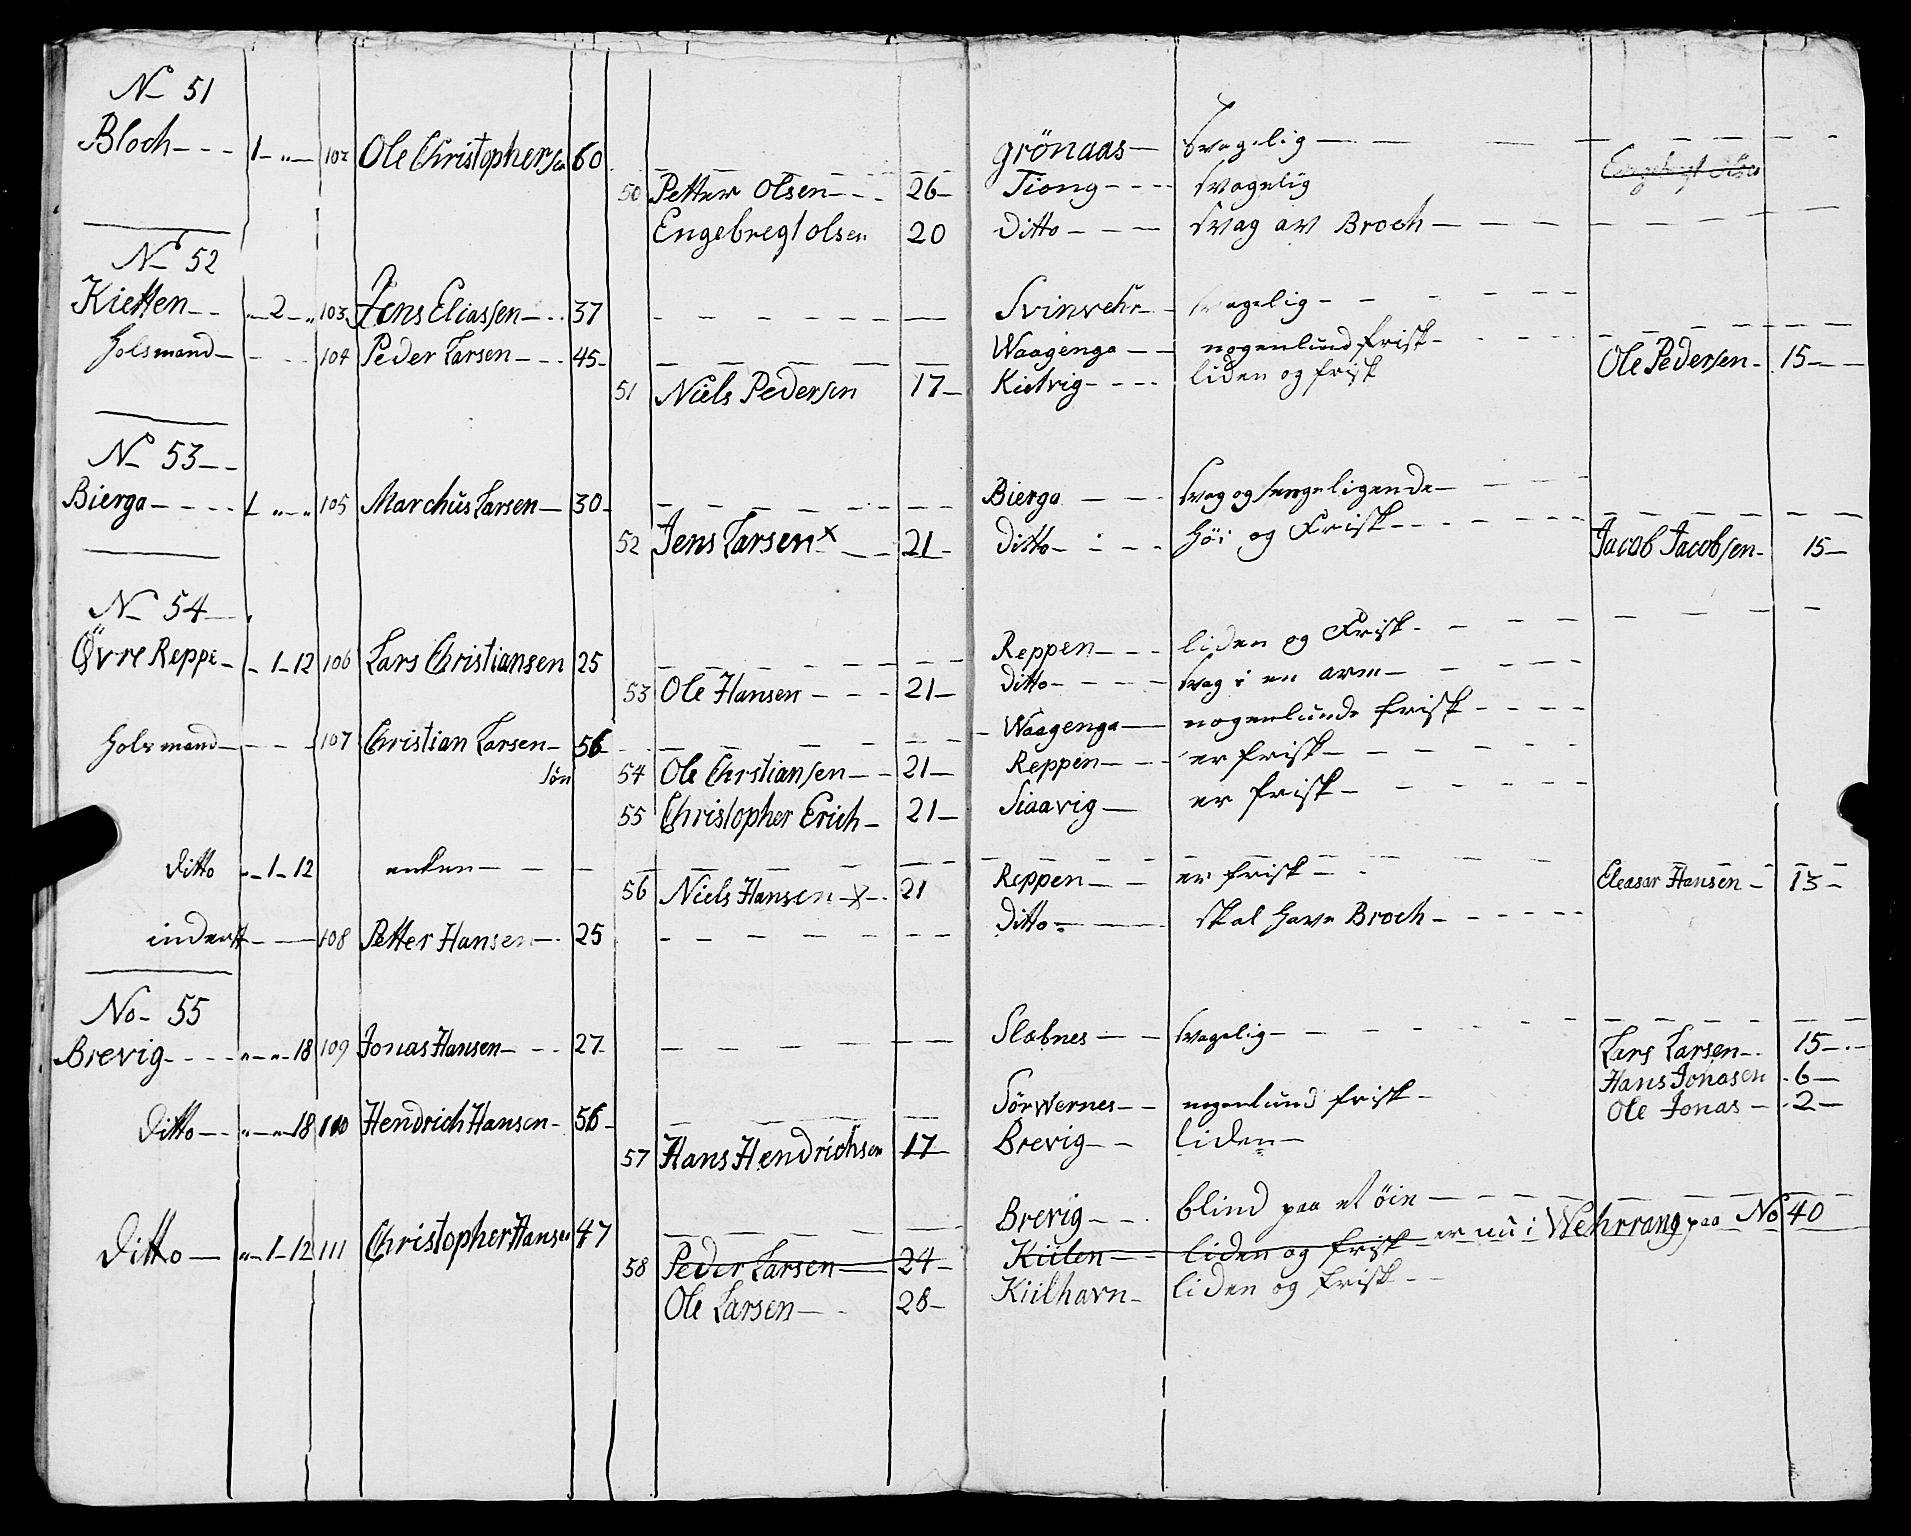 No 51
Bloch - - - 1 - " - 102 Ole Christophersen 60 - - - Grönaas - Svagelig - - -
50 Petter Olsen - - - 26 - Tiong - - - - svagelig
Engebregt olsen 20 Ditto - - - - svag av Broch - - - -
No 52
Kietten - - " - 2 - " 103 Jens Eliassen - - - 37 - - - Svinvehr - - svagelig - - - -
Holsmand - - - - 104 Peder Larsen - - - 45 - - - Waagenga - - nogenlund frisk - - - -
51 Niels Pedersen 17 - Kielvig - - - - liden og frisk Ole Pedersen - 15 - -
No 53 - -
Bierga - - - - 1 " - " 105 Marchus Larsen - 30 - - - Bierga - - - svag og sengeligende - - - -
52 Jens Larsen x - - 21 - Ditto - - - - Høi og Frisk - - - - Jacob Jacobsen - 15 -
No 54 - .
Øvre Reppe - - 1 - 12 106 Lars Christiansen 25 - - - Reppen - - - liden og Frisk - - - -
53 Ole Hansen - - - 21 - Ditto - - - - svag i en arm - - - -
Holsmand - - - - 107 Christian Larsen - 56 - - - Waagenga - nogenlunde frisk - - - -
søn 54 Ole Chrstiansen - - 21 - Reppen - - - er frisk - - - -
55 Christopher Erich - 21 - Siaavig - er frisk - - - -
Ditto " - 1 - 12 enken - - - -
56 Niels Hansen - x - . 21 Reppen - - er frisk - - - Eleasar Hansen - 13 -
inderst - - - 108 Petter Hansen - . 25 - - - Ditto - - skal have Broch - - - -
No - 55
Brevig - - - - " - " - 18 109 Jonas Hansen - - - 27 - - - Slabnes - - svagelig - - - - Lars Larsen - . 15 - . -
Hans Jonasen . 6 -
Ditto - - " - " - 18 110 Hendrich Hansen - 56 - - - Sörwernes - - nogenlund frisk - Ole Jonas - . 2 -
57 Hans Hendrichsen 17 - Brevig - - liden -
Ditto - " - 1 - 12 111 Christopher Hansen 47 - - - Brevig - - . blind paa et öie - - - -
58 Peder Larsen - 24 - Kiilen - liden og frisk - er nu i Wehrrang paa No 40
Ole Larsen - - 28 - Kiilhavn - liden og Frisk - -